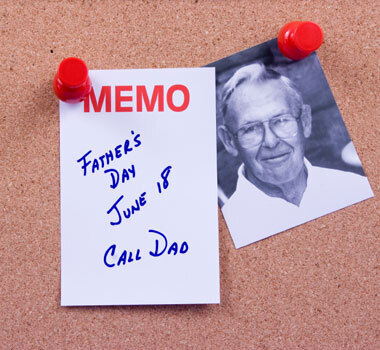 MEMO
FATHER'S
DAY
JUNE 18
CALL DAD